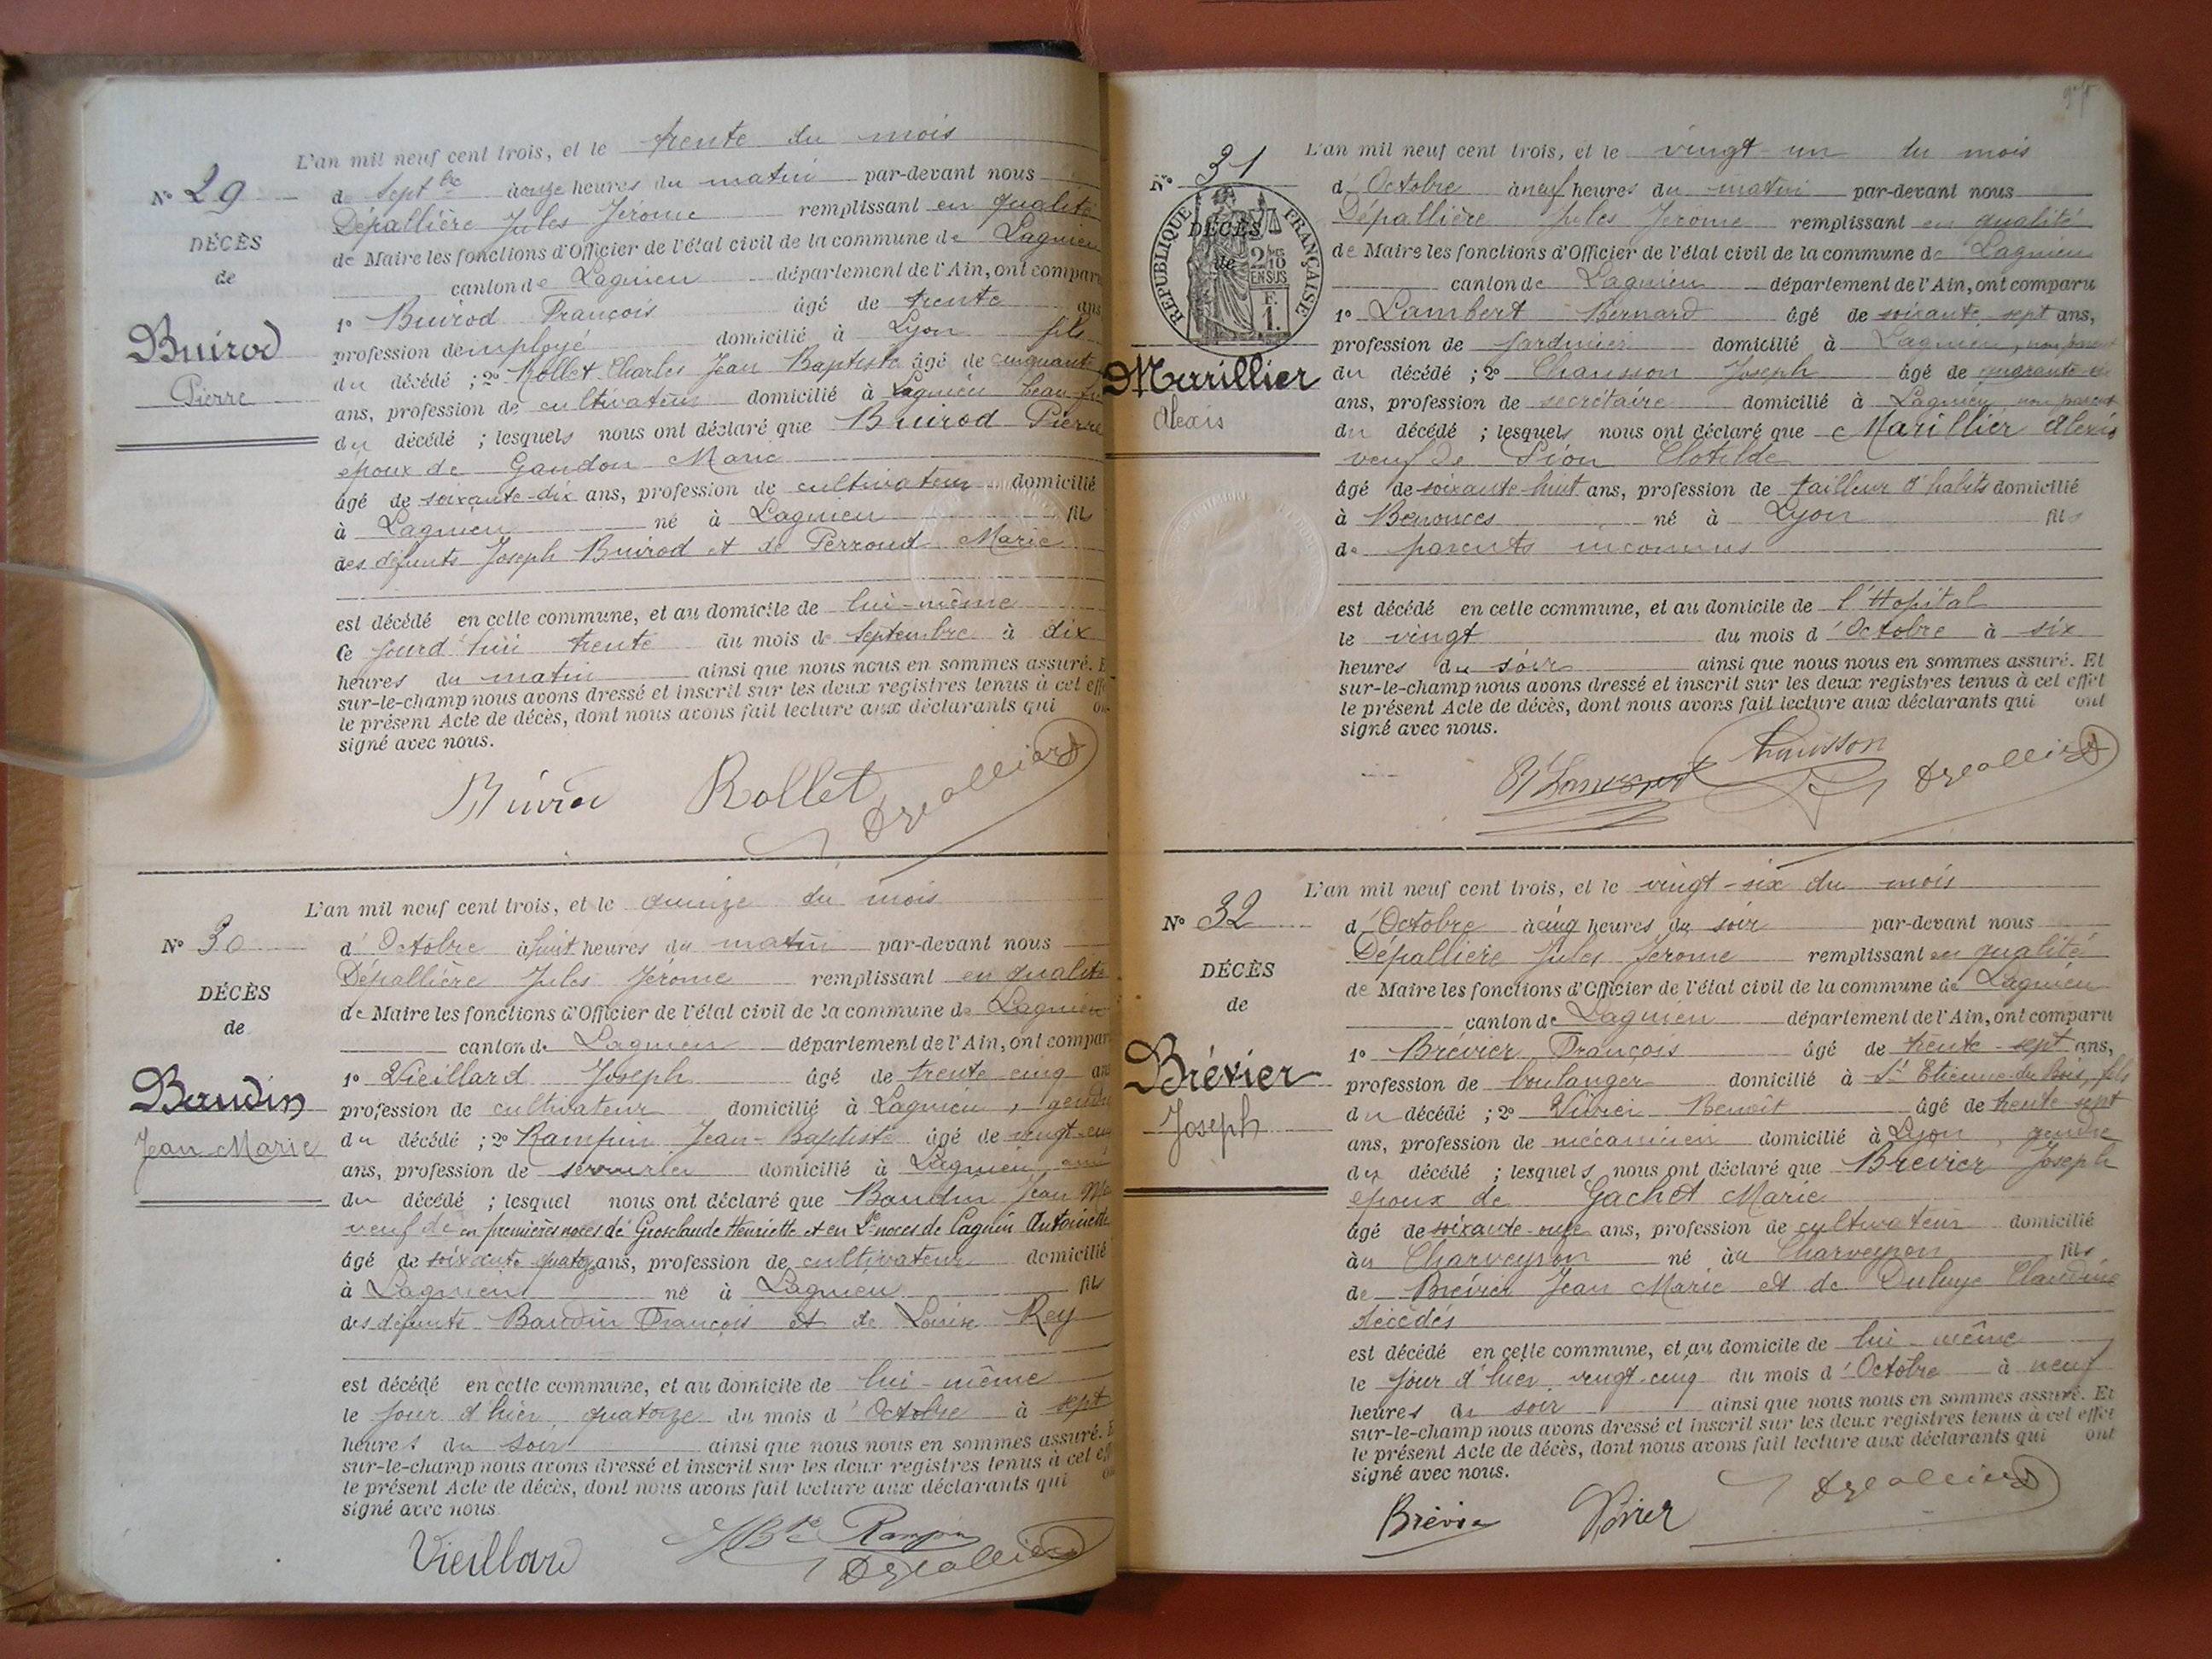 L'an mil neuf cent trois, et le trente du mois
N° 29
de Sept bre à onze heures du matin par-devant nous
Dépallière Jules Jérome remplissant en qualité
DÉCÈS
de Maire les fonctions d'Officier de l'état civil de la commune de Lagnieu
de
canton de Lagnieu département de l'Ain, ont compar
1° Buirod François âgé de trente ans
Buirod
profession de employé domicilié à Lyon fils
Pierre
du décédé ; 2° Rollet Charles Jean Baptiste âgé de cinquante
ans, profession de cultivateur domicilié à Lagnieu beau
du décédé ; lesquels nous ont déclaré que Buirod Pierre
époux de Gaudon Marie
âgé de soixante-dix ans, profession de cultivateur domicilié
à Lagnieu né à Lagnieu fils
des défunts Joseph Buirod et de Perroud Marie
est décédé en cette commune, et au domicile de lui-même
Ce jourd'hui trente du mois de Septembre à dix
heures du matin ainsi que nous nous en sommes assuré. E
sur-le-champ nous avons dressé et inscrit sur les deux registres tenus à cet effe
le présent Acte de décès, dont nous avons fait lecture aux déclarants qui on
signé avec nous.
Buirod Rollet
L'an mil neuf cent trois, et le quinze du mois
N° 30
d'Octobre à huit heures du matin par-devant nous
Dépallière Jules Jérome remplissant en qualité
DÉCÈS
de Maire les fonctions d'Officier de l'état civil de la commune de Lagnieu
de
canton de Lagnieu département de l'Ain, ont compar
1° Vieillard Joseph âgé de trente cinq ans
Baudin
profession de cultivateur domicilié à Lagnieu, gendre
Jean Marie
du décédé ; 2° Rampin Jean-Baptiste âgé de vingt-
ans, profession de serrurier domicilié à Lagnieu, ami
du décédé ; lesquel nous ont déclaré que Baudin Jean Ma
veuf de en premières noces de Grosclaude Henriette et en 2e noces de Cagnin Antoinette
âgé de soixante quatorze ans, profession de cultivateur domicilié
à Lagnieu né à Lagnieu fils
des défunts Baudin François et de Louise Rey
est décédé en cette commune, et au domicile de lui-même
le jour d'hier, quatorze du mois d'Octobre à sept
heures du soir ainsi que nous nous en sommes assuré. E
sur-le-champ nous avons dressé et inscrit sur les deux registres tenus à cet ef
le présent Acte de décès, dont nous avons fait lecture aux déclarants qui on
signé avec nous
Vieillard JBte Rampin
L'an mil neuf cent trois, et le vingt-un du mois
N° 31
d'Octobre à neuf heures du matin par-devant nous
Dépallière Jules Jérome remplissant en qualité
RÉPUBLIQUE FRANÇAISE
DÉCÈS
de
2/10 EN SUS
F. 1.
de Maire les fonctions d'Officier de l'état civil de la commune de Lagnieu
canton de Lagnieu département de l'Ain, ont comparu
1° Lambert Bernard âgé de soixante sept ans,
profession de jardinier domicilié à Lagnieu, non parent
Marillier
Alexis
du décédé ; 2° Chausson Joseph âgé de quarante
ans, profession de secrétaire domicilié à Lagnieu, non parent
du décédé ; lesquels nous ont déclaré que Marillier Alexis
veuf de Sion Clotilde
âgé de soixante-huit ans, profession de tailleur d'habits domicilié
à Benonces né à Lyon fils
de parents inconnus
est décédé en cette commune, et au domicile de l'Hopital
le vingt du mois d'Octobre à six
heures du soir ainsi que nous nous en sommes assuré. Et
sur-le-champ nous avons dressé et inscrit sur les deux registres tenus à cet effet
le présent Acte de décès, dont nous avons fait lecture aux déclarants qui ont
signé avec nous.
Chausson
L'an mil neuf cent trois, et le vingt-six du mois
N° 32
d'Octobre à cinq heures du soir par-devant nous
Dépallière Jules Jérome remplissant en qualité
DÉCÈS
de Maire les fonctions d'Officier de l'état civil de la commune de Lagnieu
de
canton de Lagnieu département de l'Ain, ont comparu
1° Brévier François âgé de trente-sept ans,
Brévier
profession de boulanger domicilié à St Etienne du Bois, fils
Joseph
du décédé ; 2° Vivier Benoît âgé de trente-sept
ans, profession de mécanicien domicilié à Lyon, gendre
du décédé ; lesquels nous ont déclaré que Brévier Joseph
époux de Gachet Marie
âgé de soixante-onze ans, profession de cultivateur domicilié
au Charveyron né au Charveyron fils
de Brévier Jean Marie et de Claudine
décédés
est décédé en cette commune, et au domicile de lui-même
le jour d'hier, vingt-cinq du mois d'Octobre à neuf
heures du soir ainsi que nous nous en sommes assuré. Et
sur-le-champ nous avons dressé et inscrit sur les deux registres tenus à cet effet
le présent Acte de décès, dont nous avons fait lecture aux déclarants qui ont
signé avec nous.
Brévier Vivier